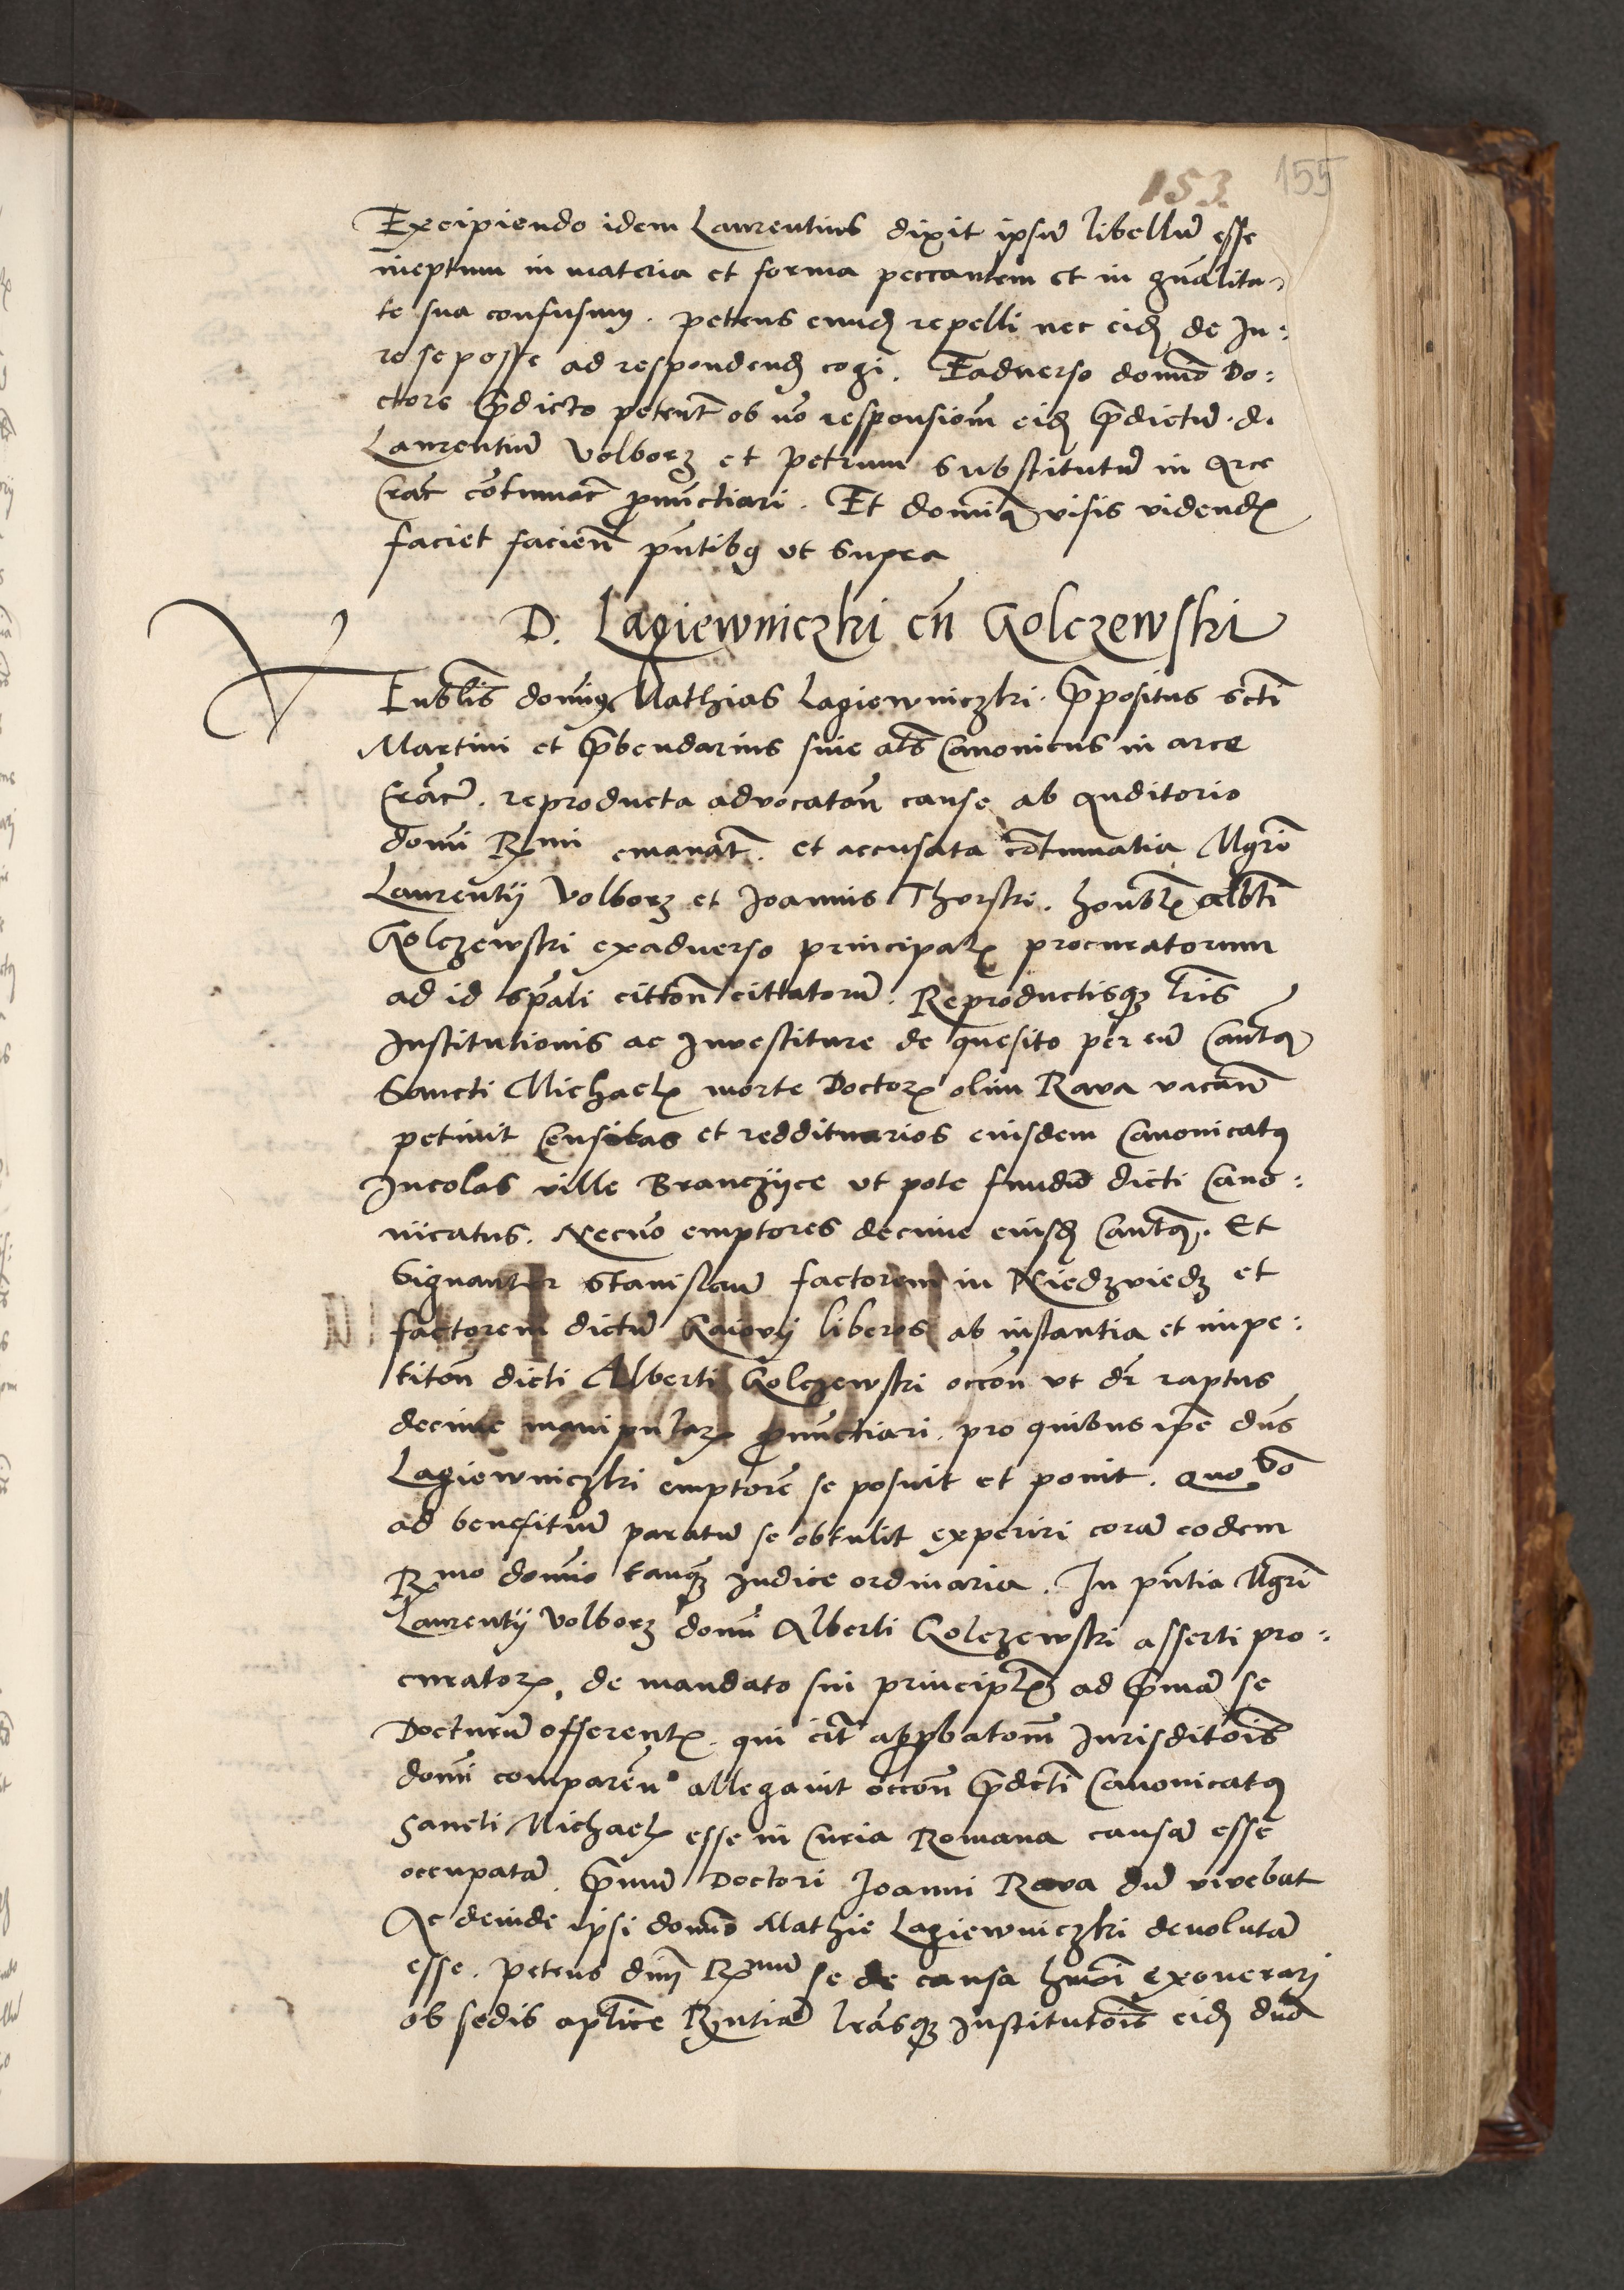 153. 155
Excipiendo idem Laurentius dixit ipsū libellū esse
ineptum in materia et forma peccantem et in gn̄alita-
te sua confusum. petens eund̄ repelli nec eid̄ de Ju:
re se posse ad respondend̄ cogi. Exadverso domīo Do:
ctore p̄dicto petent̄ ob nō responsionē eid̄ p̄dictū. d.
Laurentiū Volborz et petrum substitutū in Arce
Crac̄ cōtumac̄ pronūctiari. Et domin9 visis videnđ
faciet facien̄ pn̄tib9 ut supra
D. Lagiewniczki cū Golczewski
Venr̄blis domin9 Mathias Lagiewniczki. p̄positus scti
Martini et p̄bendarius sive al̄s Canonicus in arce
Crac̄. reproducta advocatōn cause ab Auditorio
domī Rmi emanat̄. et accusata cōtumatia Mgr̄i
Laurentij Volborz et Joannis Thorski. honor̄bl Alb̄ti
Golczewski exadverso principal procuratorum
ad id sp̄ali cittōn cittatorū. Reproductisq3 lr̄is
Institutionis ac Investiture de quesito per eū Cantq
Sancti Michael morte Doctor olim Rava vacan̄
petivit Censitas et reddituarios eiusdem Canonicat9
Incolas ville Branczijce ut pote fundū dicti Cano:
nicatus. Necnō emptores decime eiusđ Cantq. Et
Signanter Stanislaū factorem in Niedzviedz et
factorem dictū Gaiovij liberos ab instantia et impe:
titōn dicti Alberti Golczewski occōn ut dr̄ raptus
decime manipular pronūctiari. pro quibus ip̄e dn̄s
Lagiewniczki emptorē se posuit et ponit. Quo vo
ad benefitiū paratū se obtulit experiri corā eodem
Rmo domīo tanq3 Judice ordinaria. In pn̄tia Mgr̄i
Laurentij Volborz domī Alberti Golczewski asserti pro:
curator, de mandato sui principl ad p̄mā se
Docturū offerent. qui cit̄ app̄batom̄ Jurisditōis
domī comparēn allegavit occōn p̄dcti Canonicat9
Sancti Michael esse in Curia Romana causā esse
occupatā. p̄mū Doctori Joanni Rava dū vivebat
Ac deinde ipsi domīo Mathie Lagiewniczki devolutā
esse. petens dnm̄ Rmum se de causa hmōi exonerarj
ob sedis aplice Rn̄tiā lr̄asq3 institutōis eid̄ dn̄o